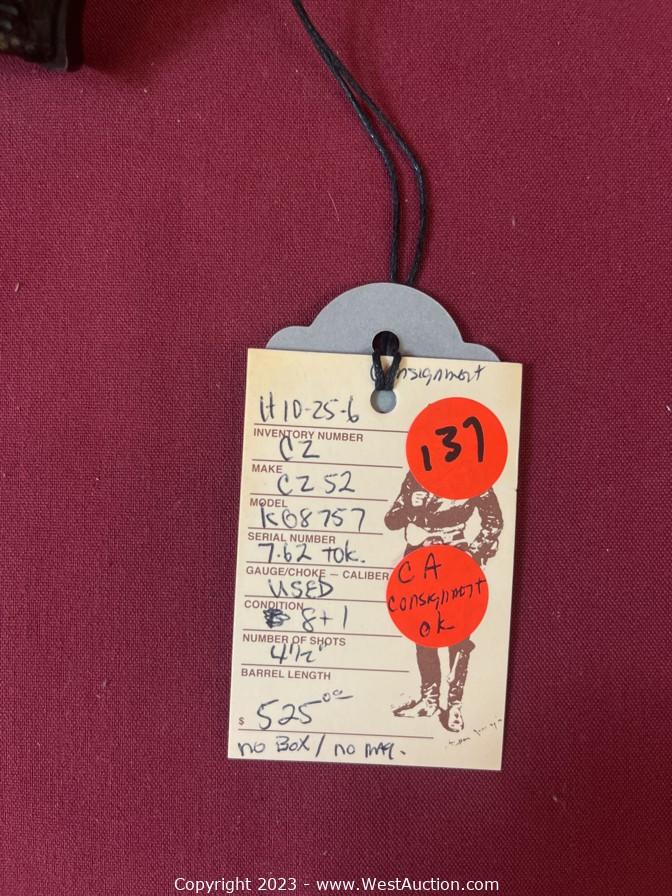 Consignment
H10-25-6
INVENTORY NUMBER
CZ
MAKE
CZ 52
MODEL
K08757
SERIAL NUMBER
7.62 TOK.
GAUGE/CHOKE — CALIBER
USED
CONDITION
8+1
NUMBER OF SHOTS
4 1/2"
BARREL LENGTH
$ 525.00
no Box / no mag.
137
CA
consignment
ok
Copyright 2023 - www.WestAuction.com